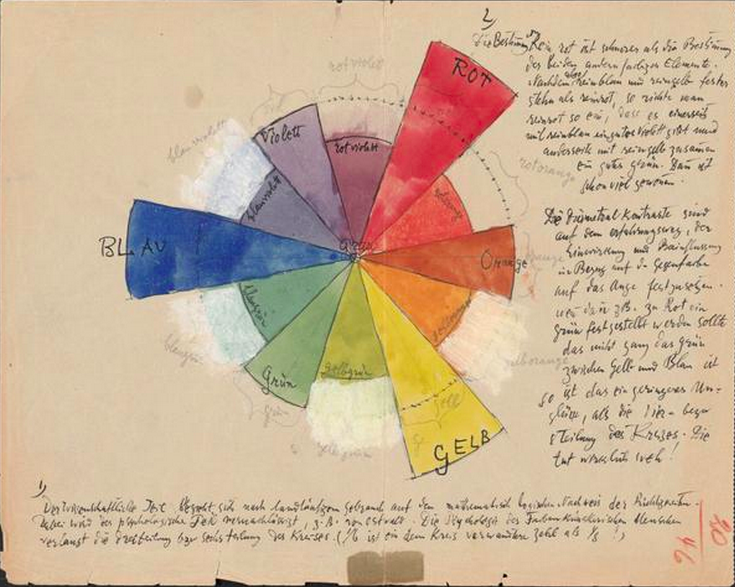 2)
Die Bestimmung von Rein rot ist schwerer als die Bestimmung
der beiden andern farbigen Elemente.
Nachdem aber reinblau und reingelb fester
stehn als reinrot, so richte man
reinrot so ein, dass es einerseits
mit reinblau ein gutes violett gibt und
anderseits mit reingelb zusammen
ein gutes grün. Dann ist
schon viel gewonnen.
Die Diametral Kontraste sind
auf dem erfahrungsweg, der
Einwirkung und Beeinflussung
in Bezug auf die Gegenfarbe
auf das Auge festzusetzen.
wenn dann z.B. zu Rot ein
grün festgestellt werden sollte
das nicht ganz das grün
zwischen Gelb und Blau ist
so ist das ein geringeres Un-
glück, als die
teilung des Kreises. Die
tut wirklich weh!
rotviolett
ROT
violett
Violett
rotviolett
blauviolett
blauviolett
rotorange
BLAU
Grau
Orange
orange
blaugrün
gelborange
blaugrün
gelborange
Grün
gelbgrün
gelb
grün
gelbgrün
GELB
1)
Der wissenschaftliche Teil bezieht sich nach landläufigem gebrauch auf den mathematisch logischen Nachweis der Richtigkeiten.
Dabei wird der psychologische Teil vernachlässigt, z.B. von Ostwald. Die Psychologie des Menschen
verlangt die dreiteilung bzw sechsteilung des Kreises. ( ist ein dem Kreis verwandtere Zahl als !)